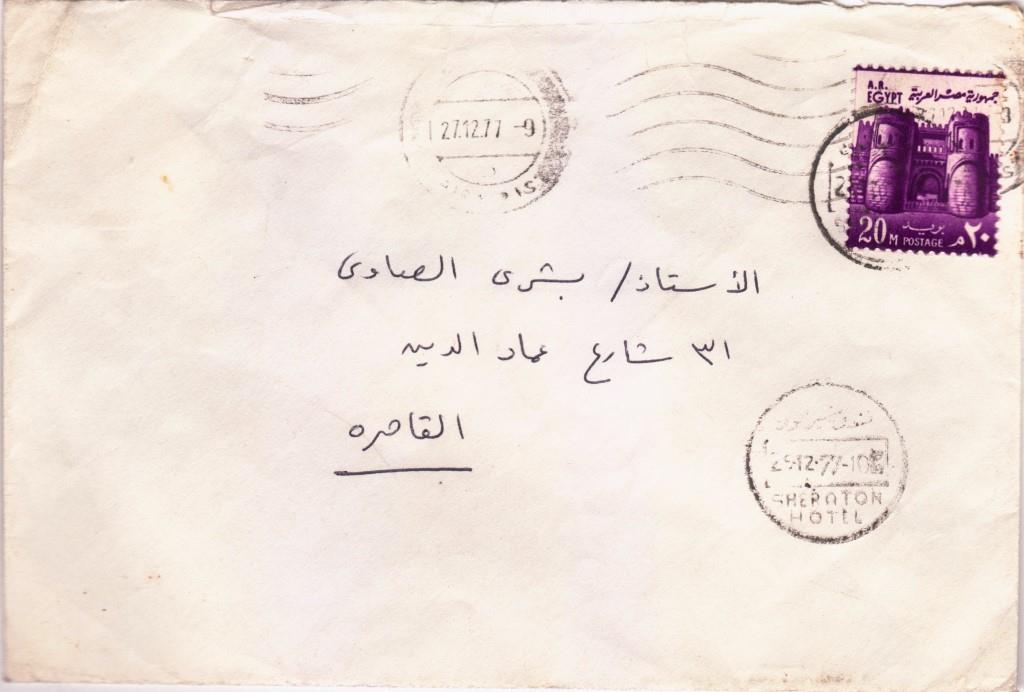 A.R. EGYPT جمهورية مصر العربية
27.12.77 -9
بريد
20 M POSTAGE ٢٠ م
الأستاذ/ بشرى الصاوى
٣١ شارع عماد الدين
القاهره
12.77-10
SHERATON
HOTEL